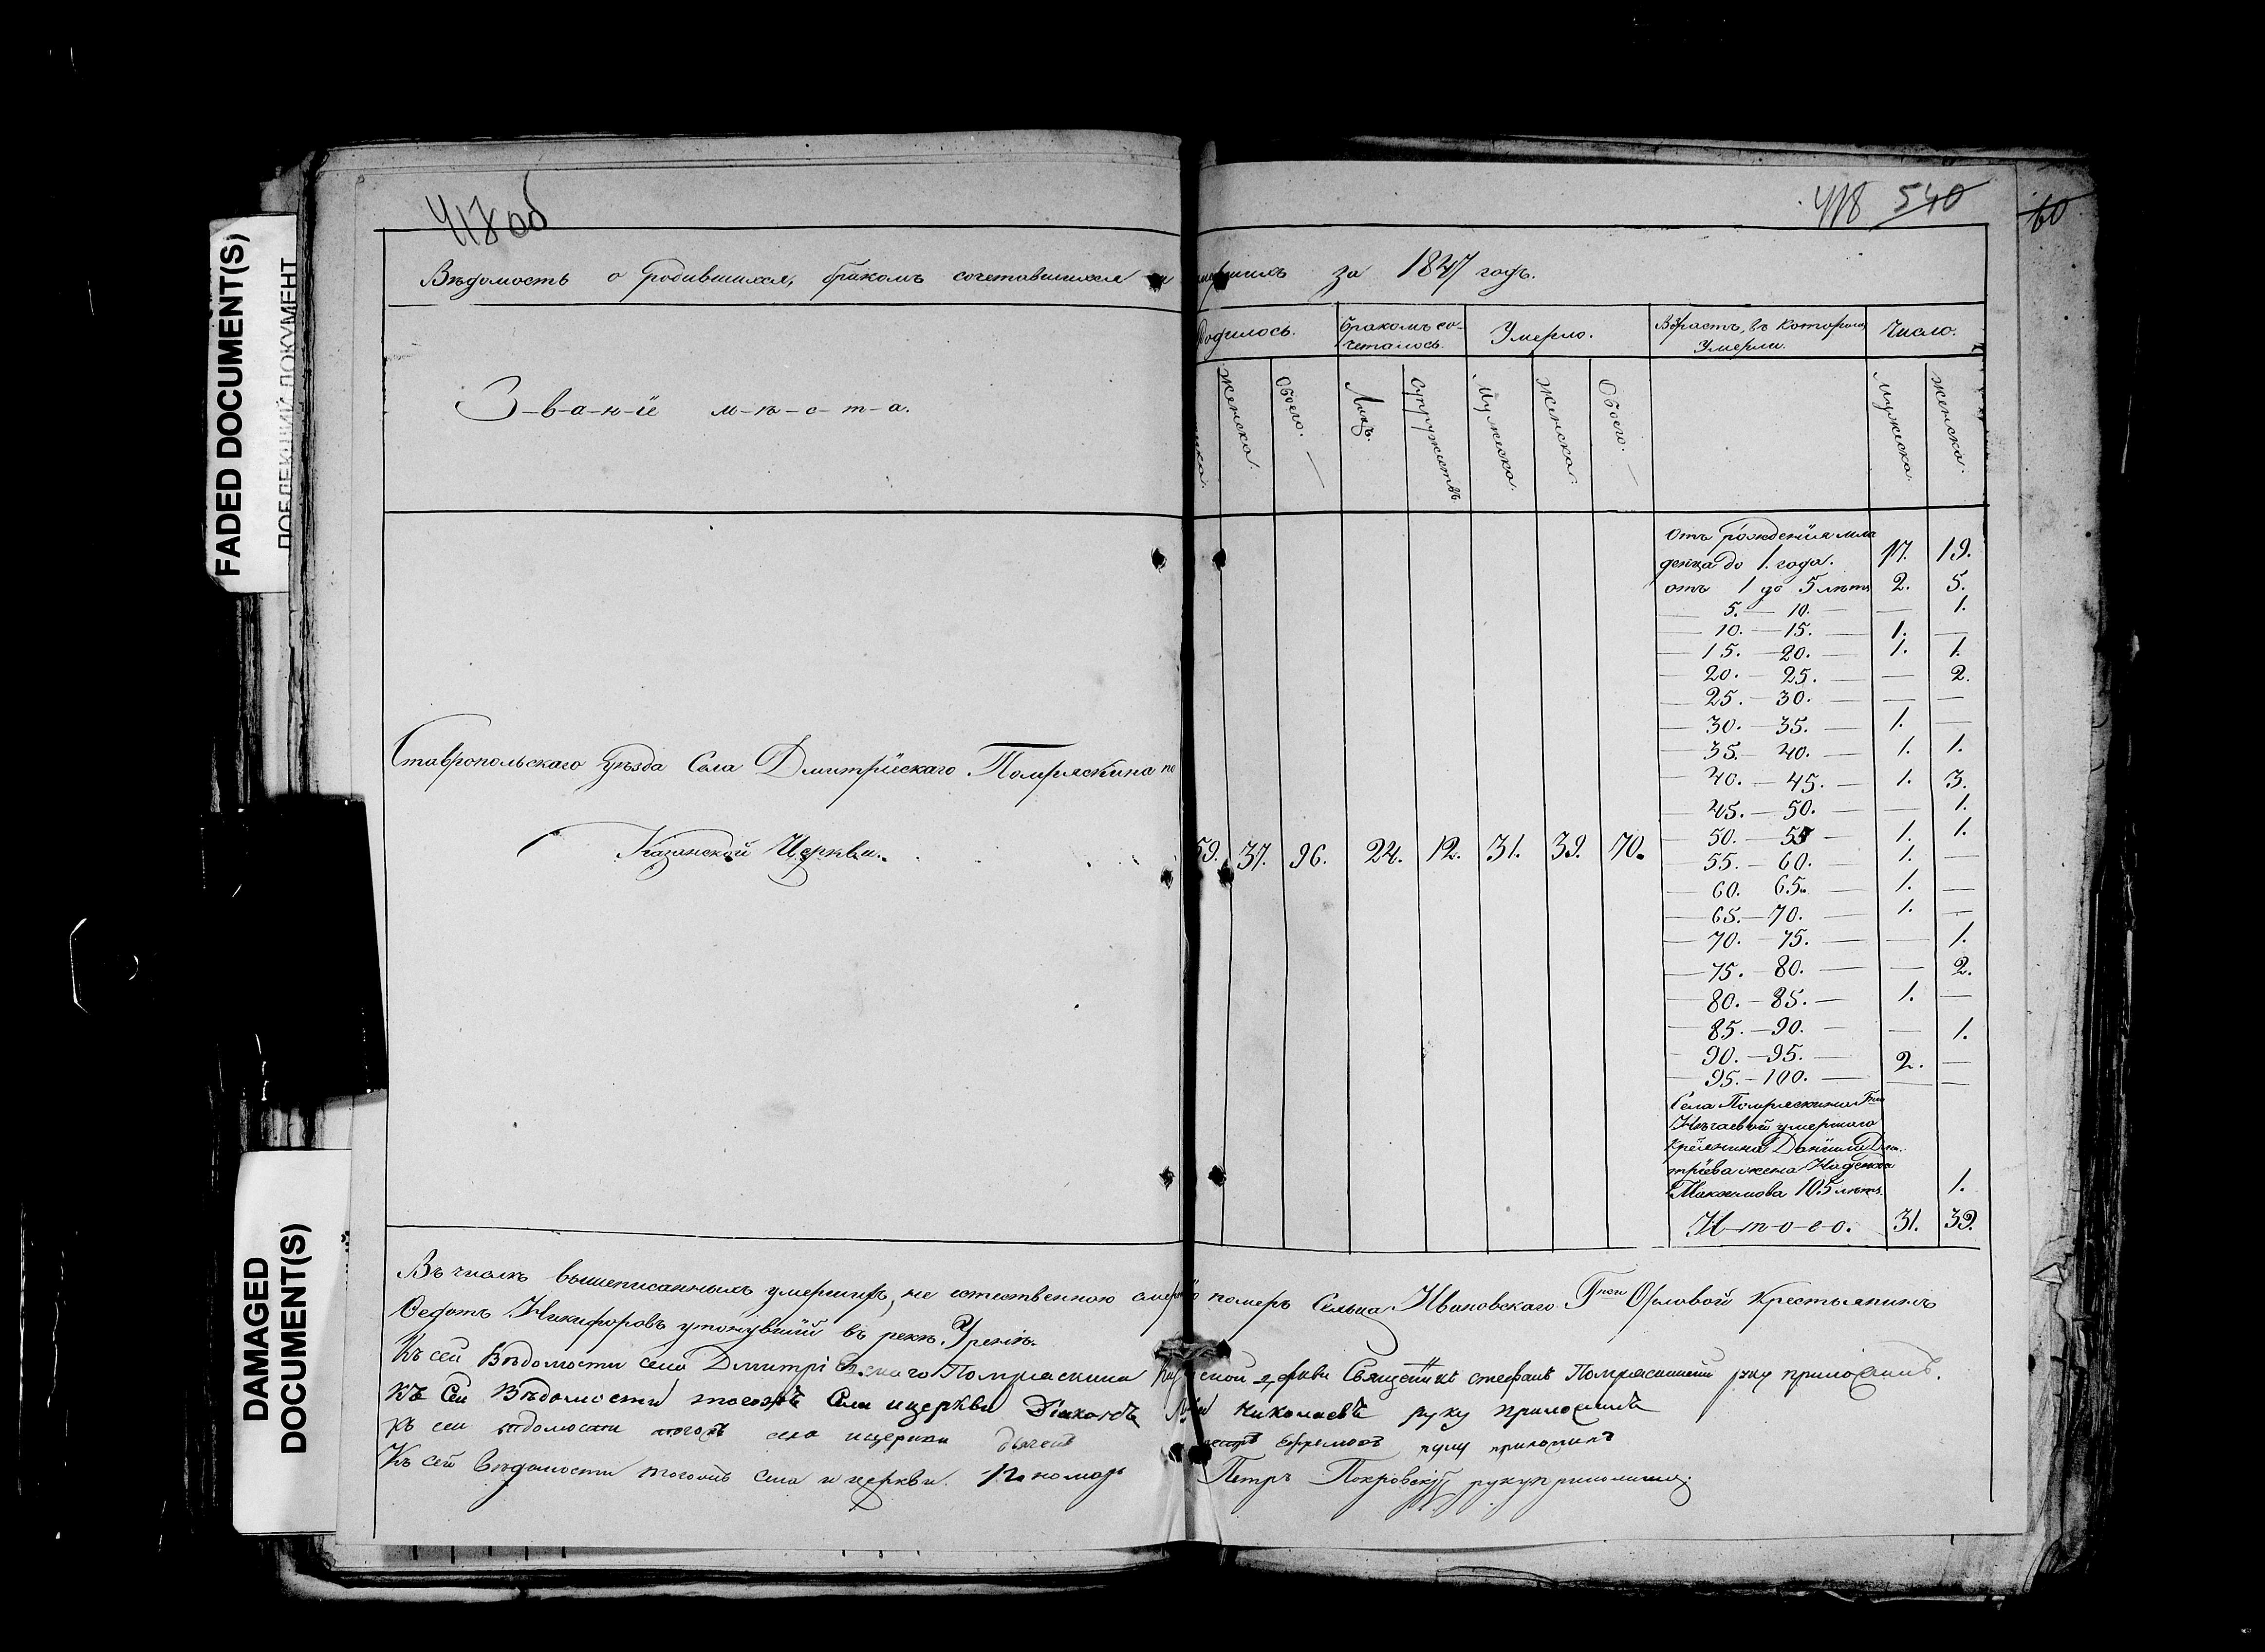 418 об
418 540
60
FADED DOCUMENT(S)
DAMAGED
DOCUMENT(S)
Вѣдомость о родившихся, бракомъ сочетавшихся и умершихъ за 1847 годъ.
З-в-а-н-iе м-ѣ-с-т-а.
Родилось.
Бракомъ со-
четалось.
Умерло.
Возрастъ, въ которомъ
Умерли.
Число.
Женска.
Обоего.
Лицъ.
Супружествъ
Мужеска.
Женска.
Обоего.
Мужеска.
Женска.
Ставропольскаго уѣзда Села Дмитрiйскаго Помряскина по
Казанской Церкви.
59. 37. 96. 24. 12. 31. 39. 70.
отъ рожденiя мла
денца до 1. года. 17. 19.
отъ 1 до 5 лѣтъ 2. 5.
5. — 10. — — 1.
10. — 15. — 1. —
15. — 20. — 1. 1.
20. — 25. — — 2.
25. — 30. — — —
30. — 35. — 1. —
35. — 40. — 1. 1.
40. — 45. — 1. 3.
45. — 50. — — 1.
50. — 55 — 1. 1.
55. — 60. — 1. —
60. 65. — 1. —
65. — 70. — 1. —
70. — 75. — — 1.
75. — 80. — — 2.
80. — 85. — 1. —
85. — 90. — — 1.
90. — 95. — 2. —
95. — 100. — — —
Села Помряскина Гжи
Нѣчаевой умершаго
Данiила Дми
трiева жена Надежда
Максимова 105 лѣтъ. 1.
И-т-о-г-о. 31. 39.
Въ числѣ вышеписанныхъ умершихъ, не естественною смертiю померъ Сельца Ивановскаго Гжи Орловой Крестьянинъ
Ѳедотъ Никифоровъ утонувшiй въ рекѣ Уренѣ.
Къ сей Вѣдомости села Помряскина Казанской церкви Священникъ Стефанъ Помряскинскiй руку приложилъ.
Къ сей Вѣдомости тогожъ Села и церкви Дiаконъ Николаевъ руку приложилъ
Къ сей вѣдомости тогожъ села и церкви Ефремовъ руку приложилъ
Къ сей Вѣдомости тогожъ села и церкви Пономарь Петръ Покровскiй руку приложилъ.